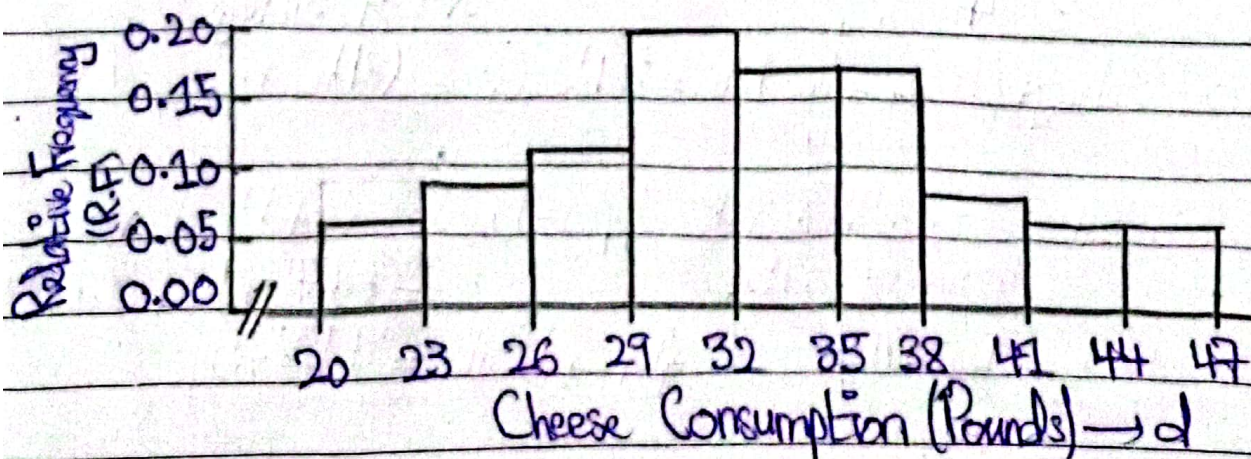 Relative Frequency
(R.F)
0.20
0.15
0.10
0.05
0.00
20 23 26 29 32 35 38 41 44 47
Cheese Consumption (Pounds) → d